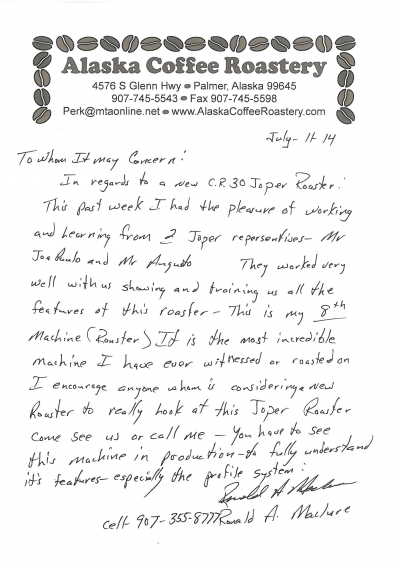 Alaska Coffee Roastery
4576 S Glenn Hwy • Palmer, Alaska 99645
907-745-5543 • Fax 907-745-5598
Perk@mtaonline.net • www.AlaskaCoffeeRoastery.com
July-11-14
To Whom It may Concern:
In regards to a new C.R.30 Joper Roaster!
This past week I had the pleasure of working
and Learning from 2 Joper repersentives- Mr
Joa Paulo and Mr Augusto They worked very
well with us showing and training us all the
features of this roaster - This is my 8th
Machine (Roaster) It is the most incredible
machine I have ever witnessed or roasted on
I encourage anyone whom is considering a new
Roaster to really Look at this Joper Roaster
come see us or call me - You have to see
this machine in production - to fully understand
it's features - especially the profile system!
Ronald A. Maclure
cell 907-355-8777